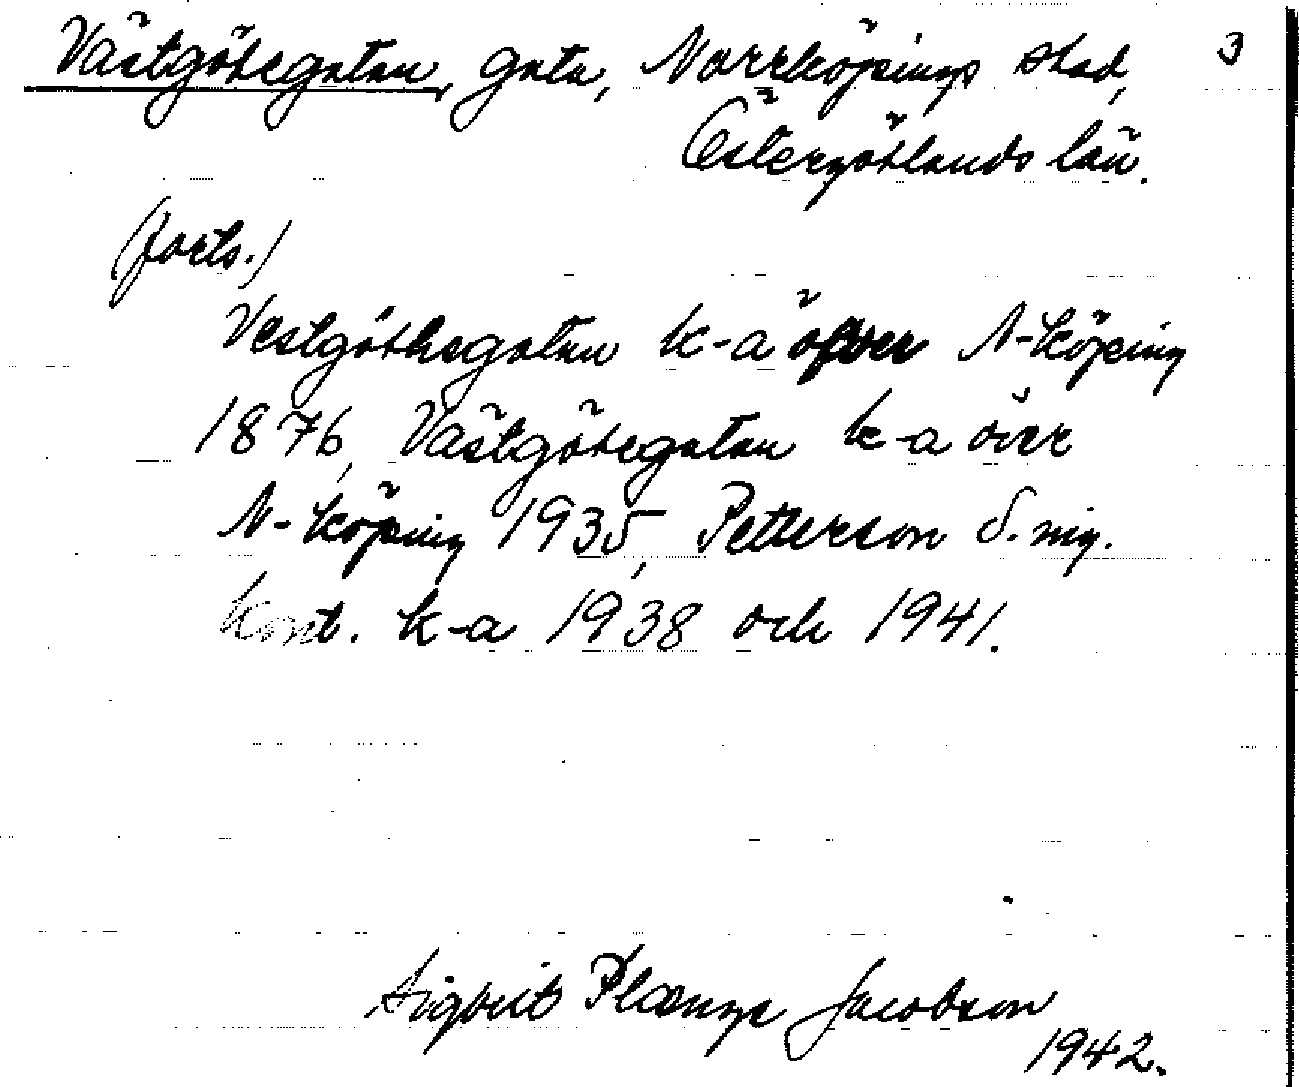 Västgötegatan, gata, Norrköpings stad, 3
Östergötlands län.
(forts.)
Vestgöthegatan k-a öfver N-köping
1876, Västgötegatan k-a över
N-köping 1935, Petterson o. ing.
kont. k-a 1938 och 1941.
Sigbrit Plænge Jacobson
1942.